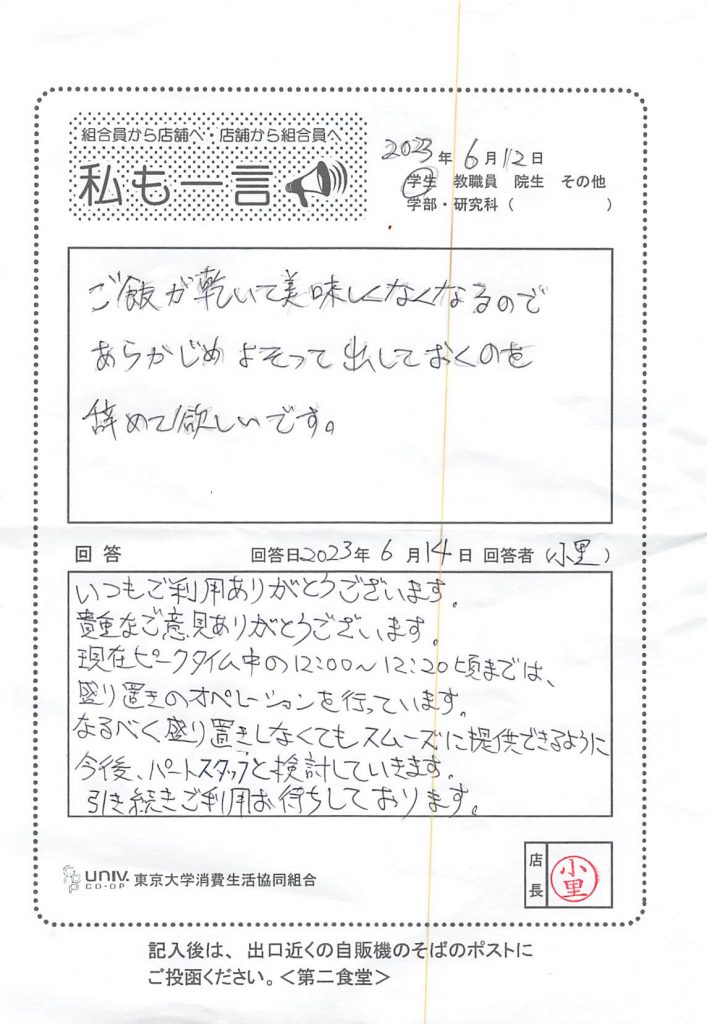 組合員から店舗へ・店舗から組合員へ
私も一言
2023年 6月12日
学生 教職員 院生 その他
学部・研究科（ ）
ご飯が乾いて美味しくなくなるので
あらかじめよそって出しておくのを
辞めて欲しいです。
回答 回答日2023年 6月14日 回答者（小里）
いつもご利用ありがとうございます。
貴重なご意見ありがとうございます。
現在ピークタイム中の12:00～12:20頃までは、
盛り置きのオペレーションを行っています。
なるべく盛り置きしなくてもスムーズに提供できるように
今後、パートスタッフと検討していきます。
引き続きご利用お待ちしております。
UNIV. CO-OP 東京大学消費生活協同組合
店長 小里
記入後は、出口近くの自販機のそばのポストに
ご投函ください。＜第二食堂＞